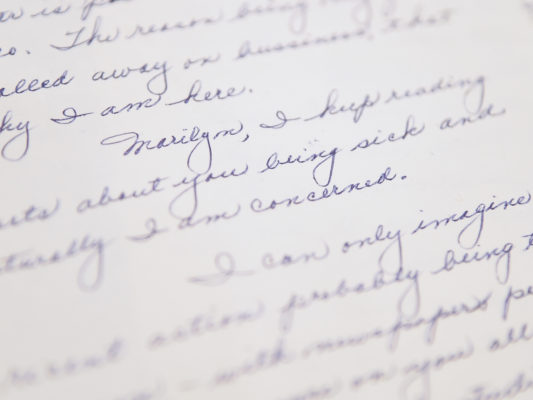 is
The reason being
called away on bussiness, that
why I am here.
Marilyn, I keep reading
about you being sick and
naturally I am concerned.
I can only imagine
recent action probably being
- with newspapers
on you all